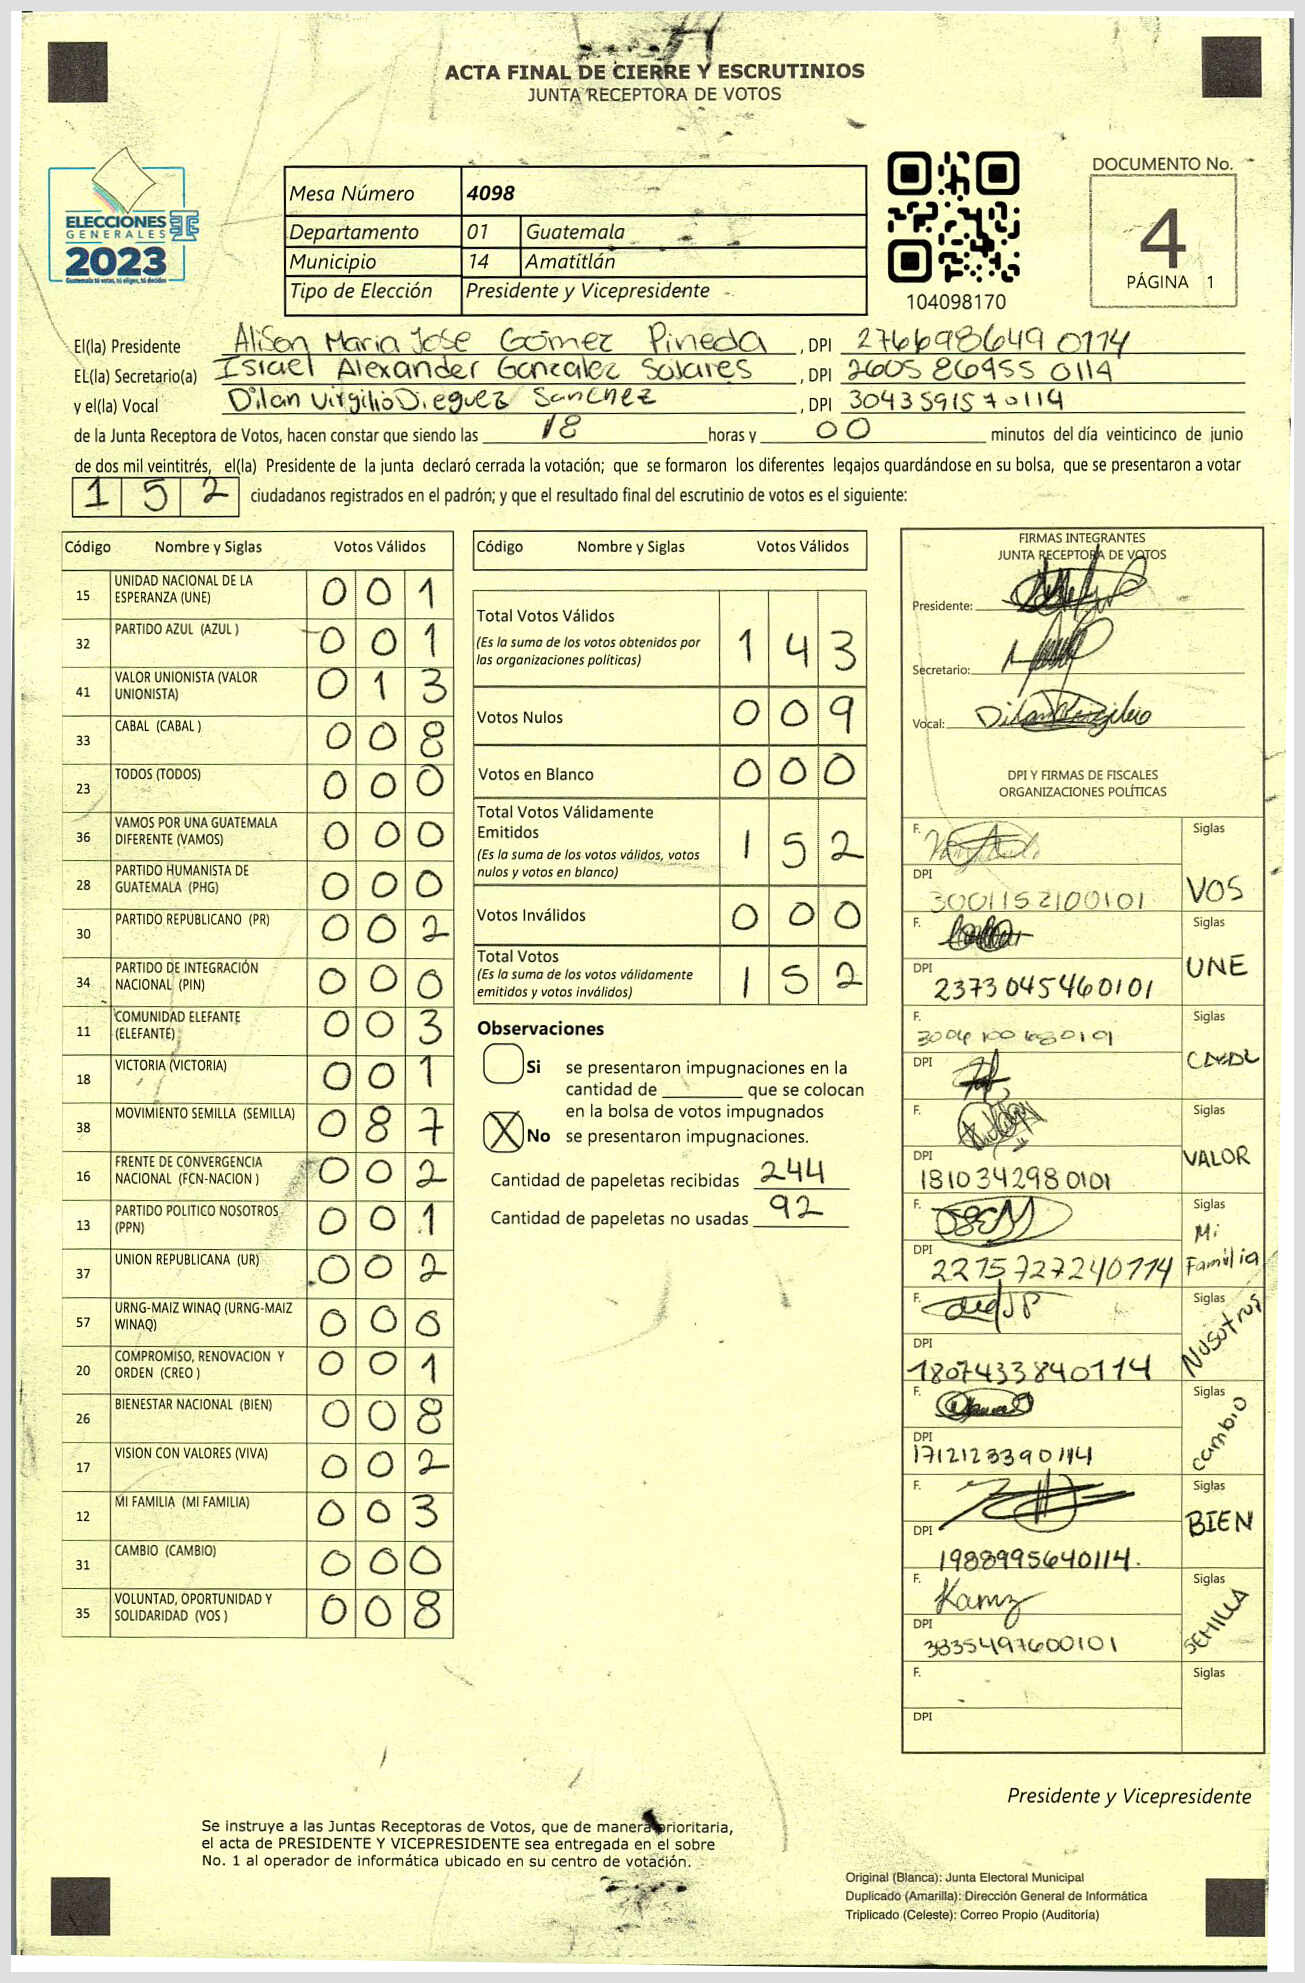 ACTA FINAL DE CIERRE Y ESCRUTINIOS
JUNTA RECEPTORA DE VOTOS
ELECCIONES
GENERALES
2023
Guatemala tú votas, tú eliges, tú decides
Mesa Número 4098
Departamento 01 Guatemala
Municipio 14 Amatitlán
Tipo de Elección Presidente y Vicepresidente
104098170
DOCUMENTO No.
4
PÁGINA 1
El(la) Presidente Alison Maria Jose Gómez Pineda, DPI 2766986490114
EL(la) Secretario(a) Israel Alexander Gonzalez Solares, DPI 2605 86955 0114
y el(la) Vocal Dilan Virgilio Dieguez Sanchez, DPI 3043591570114
de la Junta Receptora de Votos, hacen constar que siendo las 18 horas y 00 minutos del día veinticinco de junio
de dos mil veintitrés, el(la) Presidente de la junta declaró cerrada la votación; que se formaron los diferentes legajos guardándose en su bolsa, que se presentaron a votar
152 ciudadanos registrados en el padrón; y que el resultado final del escrutinio de votos es el siguiente:
Código Nombre y Siglas Votos Válidos
15 UNIDAD NACIONAL DE LA ESPERANZA (UNE) 001
32 PARTIDO AZUL (AZUL ) 001
41 VALOR UNIONISTA (VALOR UNIONISTA) 013
33 CABAL (CABAL ) 008
23 TODOS (TODOS) 000
36 VAMOS POR UNA GUATEMALA DIFERENTE (VAMOS) 000
28 PARTIDO HUMANISTA DE GUATEMALA (PHG) 000
30 PARTIDO REPUBLICANO (PR) 002
34 PARTIDO DE INTEGRACIÓN NACIONAL (PIN) 000
11 COMUNIDAD ELEFANTE (ELEFANTE) 003
18 VICTORIA (VICTORIA) 001
38 MOVIMIENTO SEMILLA (SEMILLA) 087
16 FRENTE DE CONVERGENCIA NACIONAL (FCN-NACION ) 002
13 PARTIDO POLITICO NOSOTROS (PPN) 001
37 UNION REPUBLICANA (UR) 002
57 URNG-MAIZ WINAQ (URNG-MAIZ WINAQ) 000
20 COMPROMISO, RENOVACION Y ORDEN (CREO ) 001
26 BIENESTAR NACIONAL (BIEN) 008
17 VISION CON VALORES (VIVA) 002
12 MI FAMILIA (MI FAMILIA) 003
31 CAMBIO (CAMBIO) 000
35 VOLUNTAD, OPORTUNIDAD Y SOLIDARIDAD (VOS ) 008
Código Nombre y Siglas Votos Válidos
Total Votos Válidos 143
(Es la suma de los votos obtenidos por
las organizaciones políticas)
Votos Nulos 009
Votos en Blanco 000
Total Votos Válidamente
Emitidos 152
(Es la suma de los votos válidos, votos
nulos y votos en blanco)
Votos Inválidos 000
Total Votos 152
(Es la suma de los votos válidamente
emitidos y votos inválidos)
Observaciones
Si se presentaron impugnaciones en la
cantidad de ________ que se colocan
en la bolsa de votos impugnados
X No se presentaron impugnaciones.
Cantidad de papeletas recibidas 244
Cantidad de papeletas no usadas 92
FIRMAS INTEGRANTES
JUNTA RECEPTORA DE VOTOS
Presidente:
Secretario:
Vocal:
DPI Y FIRMAS DE FISCALES
ORGANIZACIONES POLÍTICAS
F. Siglas
DPI 3001152100101 VOS
F. Siglas
DPI 2373045460101 UNE
F. Siglas
DPI
F. Siglas
DPI 1810342980101 VALOR
F. Siglas
DPI 2215727240114 Mi Familia
F. Siglas
DPI 1807433840114 Nosotros
F. Siglas
DPI 1712123390114 Cambio
F. Siglas
DPI 1988995640114. BIEN
F. Siglas
DPI 3835497600101 SEMILLA
F. Siglas
DPI
Presidente y Vicepresidente
Se instruye a las Juntas Receptoras de Votos, que de manera prioritaria,
el acta de PRESIDENTE Y VICEPRESIDENTE sea entregada en el sobre
No. 1 al operador de informática ubicado en su centro de votación.
Original (Blanca): Junta Electoral Municipal
Duplicado (Amarilla): Dirección General de Informática
Triplicado (Celeste): Correo Propio (Auditoría)